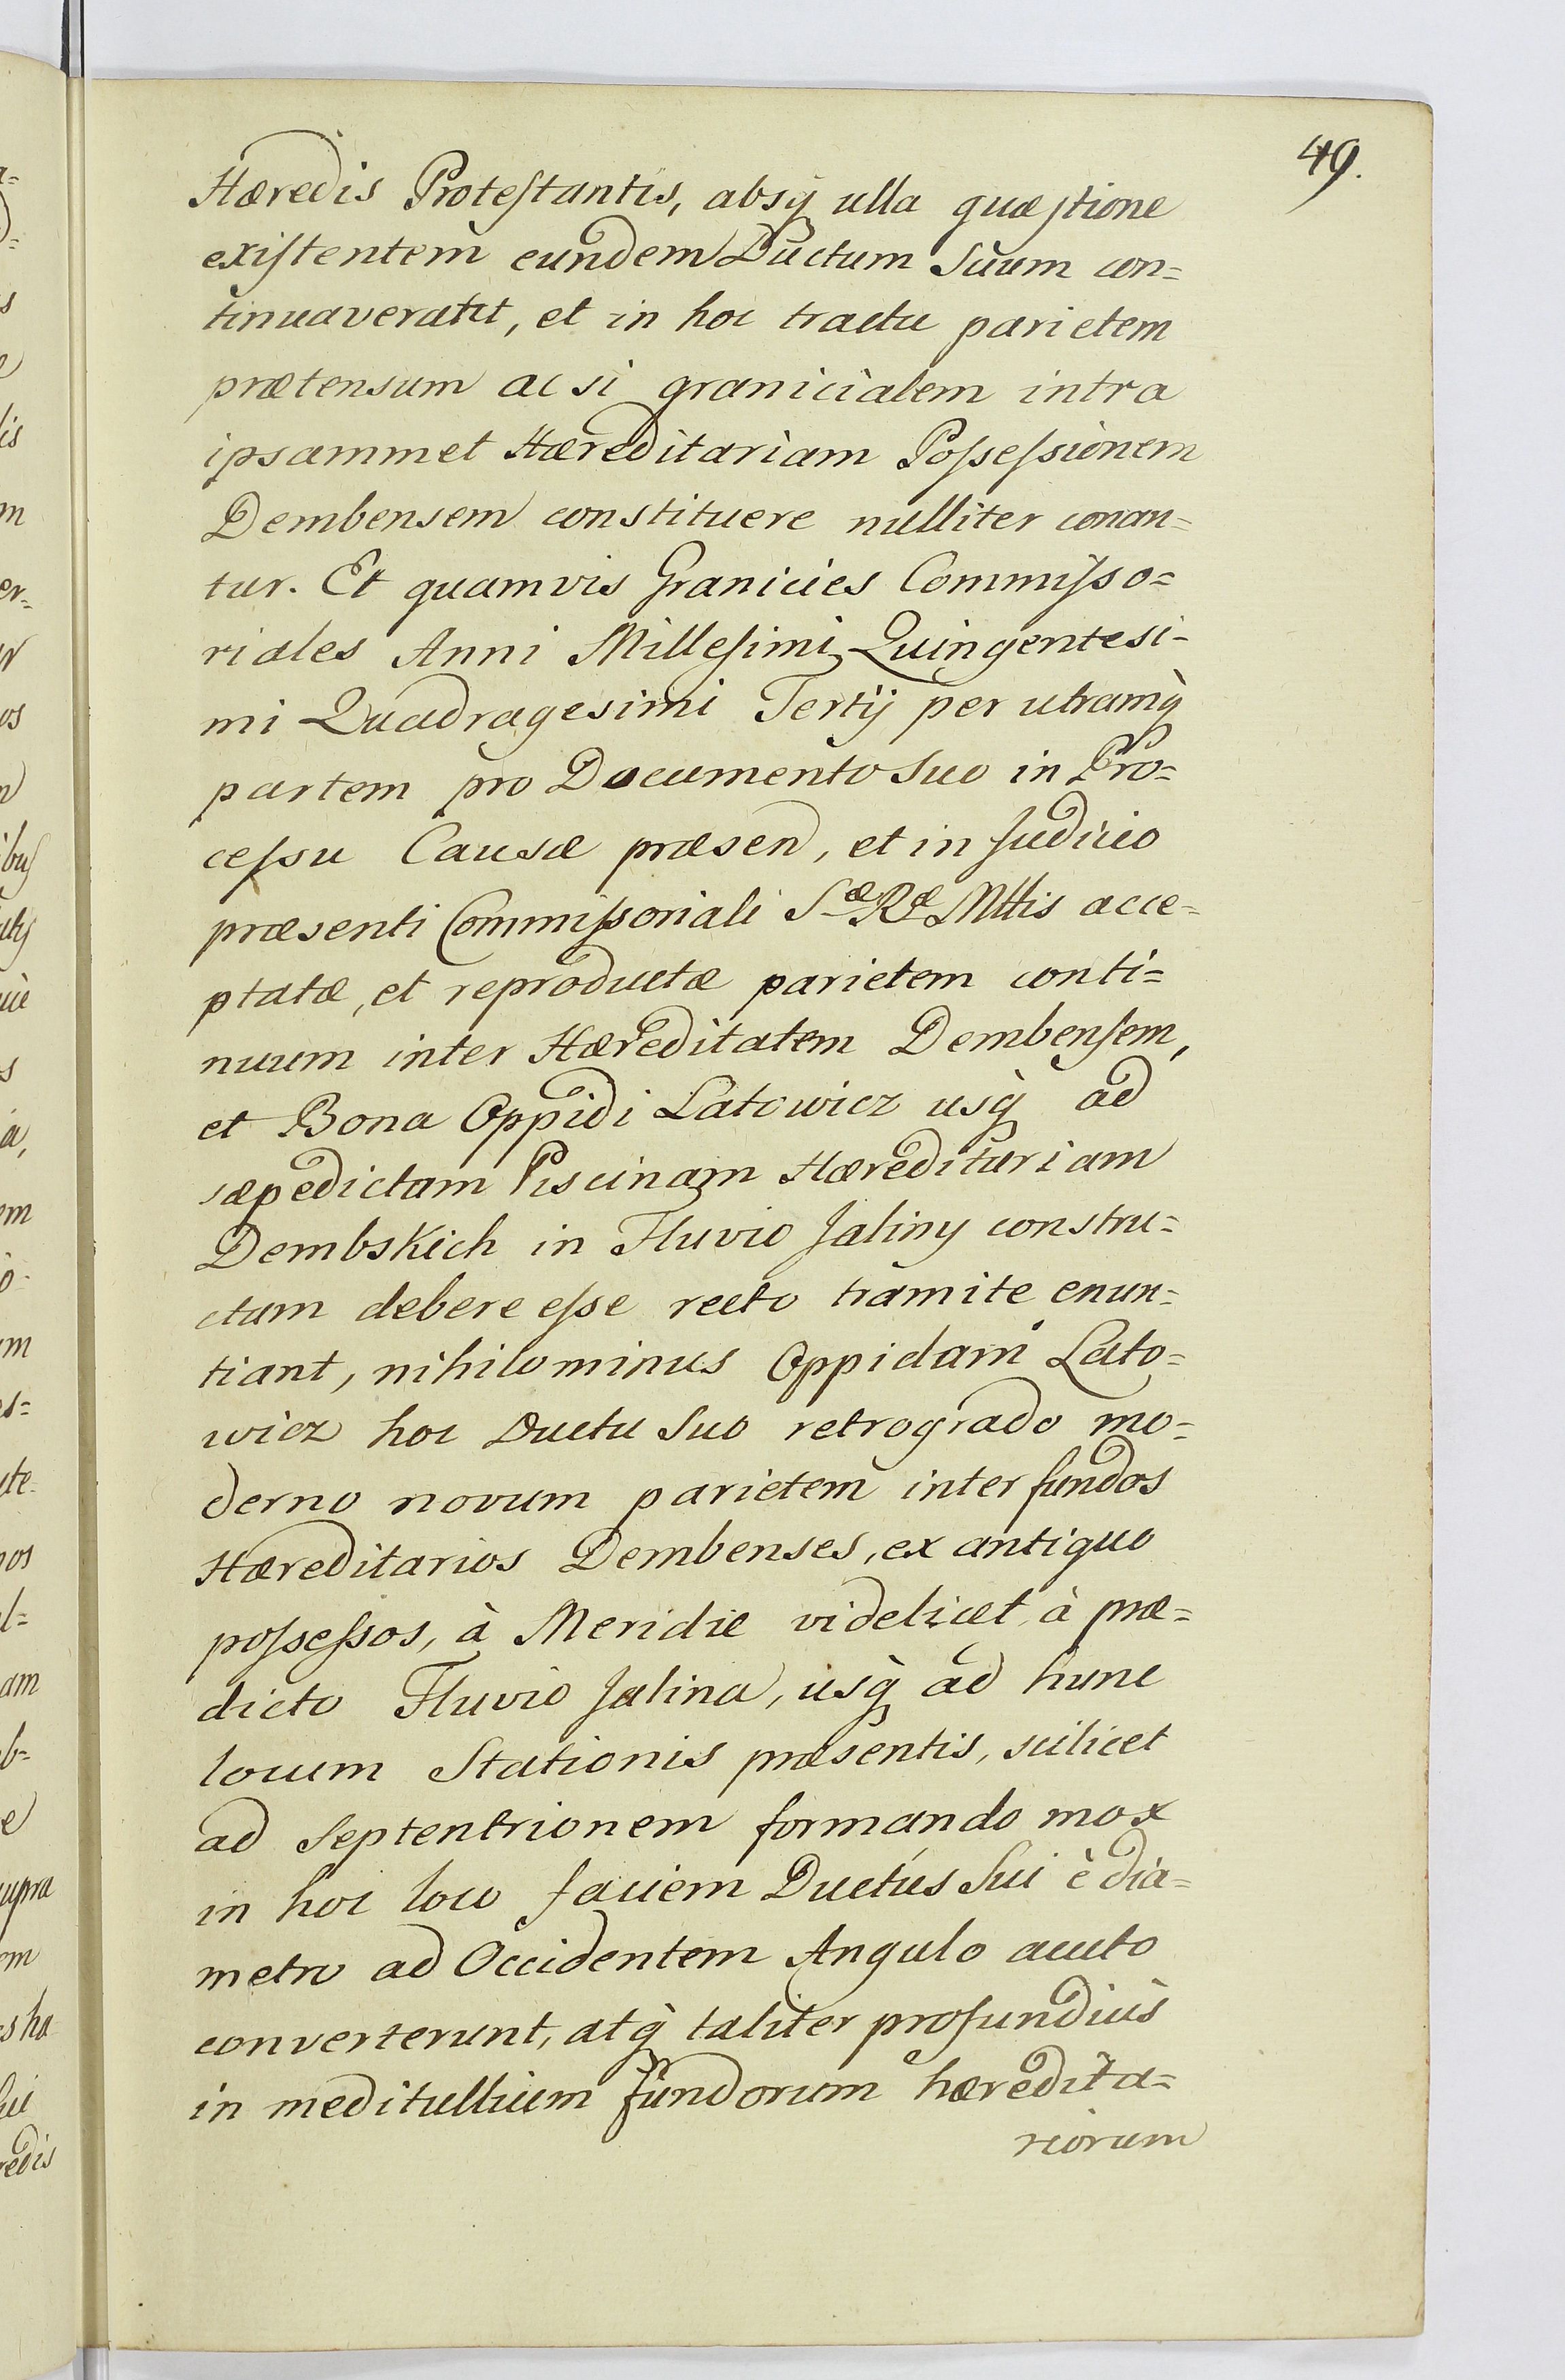 49.
Hæredis Proteſtantis, absq̀ ulla quæſtione
exiſtentem eundem Ductum Suum con=
tinuaverat̃t, et in hoc tractu parietem
prætensum ac si granicialem intra
ipsammet Hæreditariam Poſseſsionem
Dembensem constituere nulliter conan=
tur. Et quamvis Granicies Commiſso=
riales Anni Milleſimi Quingentesi-
mi Quadragesimi Tertij per utramq̀
partem pro Documento Suo in Pro=
ceſsu Causæ præsen, et in Judicio
præsenti Commiſsoriali Sæ Ræ Mttis acce=
ptatæ, et reproductæ parietem conti=
nuum inter Hæreditatem Dembenſem,
et Bona Oppidi Latowicz usq̀ ad
sæpedictam Piscinam Hæreditariam
Dembskich in Fluvio Jaliny constru=
ctam debere eſse recto tramite enun=
tiant, nihilominus Oppidani Lato=
wicz hoc Ductu Suo retrogrado mo=
derno novum parietem inter fundos
Hæreditarios Dembenses, ex antiquo
poſseſsos, à Meridie videlicet à præ=
dicto Fluvio Jalina, usq̀ ad hunc
locum Stationis præsentis, scilicet
ad Septentrionem formando mox
in hoc loco faciem Ductûs Sui è dia=
metro ad Occidentem Angulo acuto
converterunt, atq̀ taliter profundiùs
in meditullium fundorum hæredita=
riorum